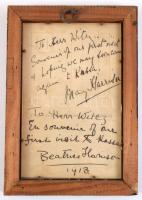 To Herr Witz.
Souvenir of our first visit
& hoping we may
again
May Harrison
To Herr Witz
En souvenir of our
first visit to Kassel
Beatrice Harrison
1913